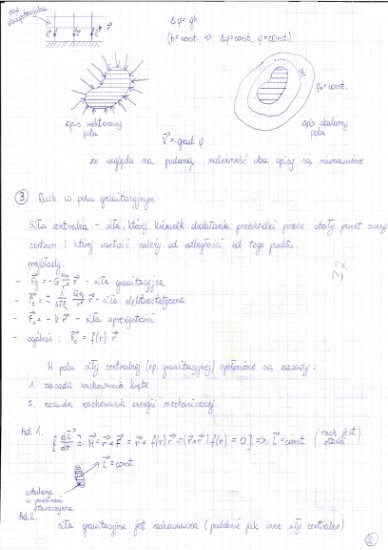 Δφ = gh
(h = const. ⇒ Δφ = const, φ = const)
φ = const.
opis wektorowy
pola
opis skalarny
pola
= -grad φ
ze względu na podaną zależność oba opisy są równoważne
③ Ruch w polu grawitacyjnym
Siła centralna - siła, której kierunek działania przechodzi przez stały punkt zwany
centrum i której wartość zależy od odległości od tego punktu.
przykłady:
- siła grawitacyjna
- siła elektrostatyczna
- siła sprężystości
- ogólnie: = f(r)·r⃗
W polu siły centralnej (np. grawitacyjnej) spełnione są zasady:
1. zasada zachowania krętu
2. zasada zachowania energii mechanicznej
Ad 1.
⇒ L⃗ = const. (ruch jest płaski)
L⃗ = const.
ustalona
w przestrzeni
płaszczyzna
Ad. 2.
siła grawitacyjna jest zachowawcza (podobnie jak inne siły centralne)
②